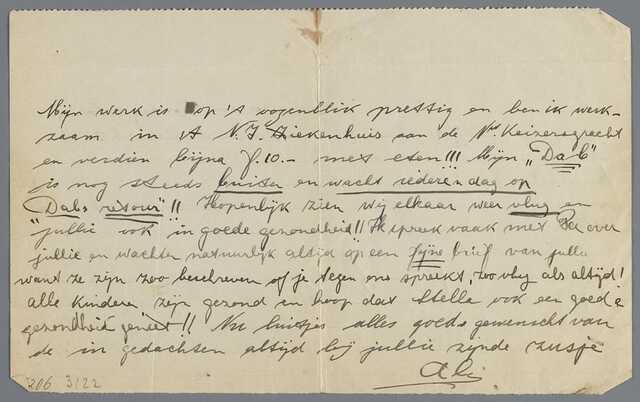 Mijn werk is op 't oogenblik prettig en ben ik werk-
zaam in 't N.I. Ziekenhuis aan de Nwe Keizersgracht
en verdien bijna f. 10.- met eten!!! Mijn „Dab"
is nog steeds buiten en wacht iederen dag op
Dabs retour"!! Hopenlijk zien wij elkaar weer vlug en
"jullie ook in goede gezondheid!! Ik spreek vaak met over
jullie en wachten natuurlijk altijd op een fijne brief van jullie
want ze zijn zoo beschreven of je tegen ons spreekt, zoo vlug als altijd!
alle kinderen zijn gezond en hoop dat Stella ook een goede
gezondheid geniet!! Nu luitjes alles goeds gewenscht van
de in gedachten altijd bij jullie zijnde zusje
Ali
206 3/22